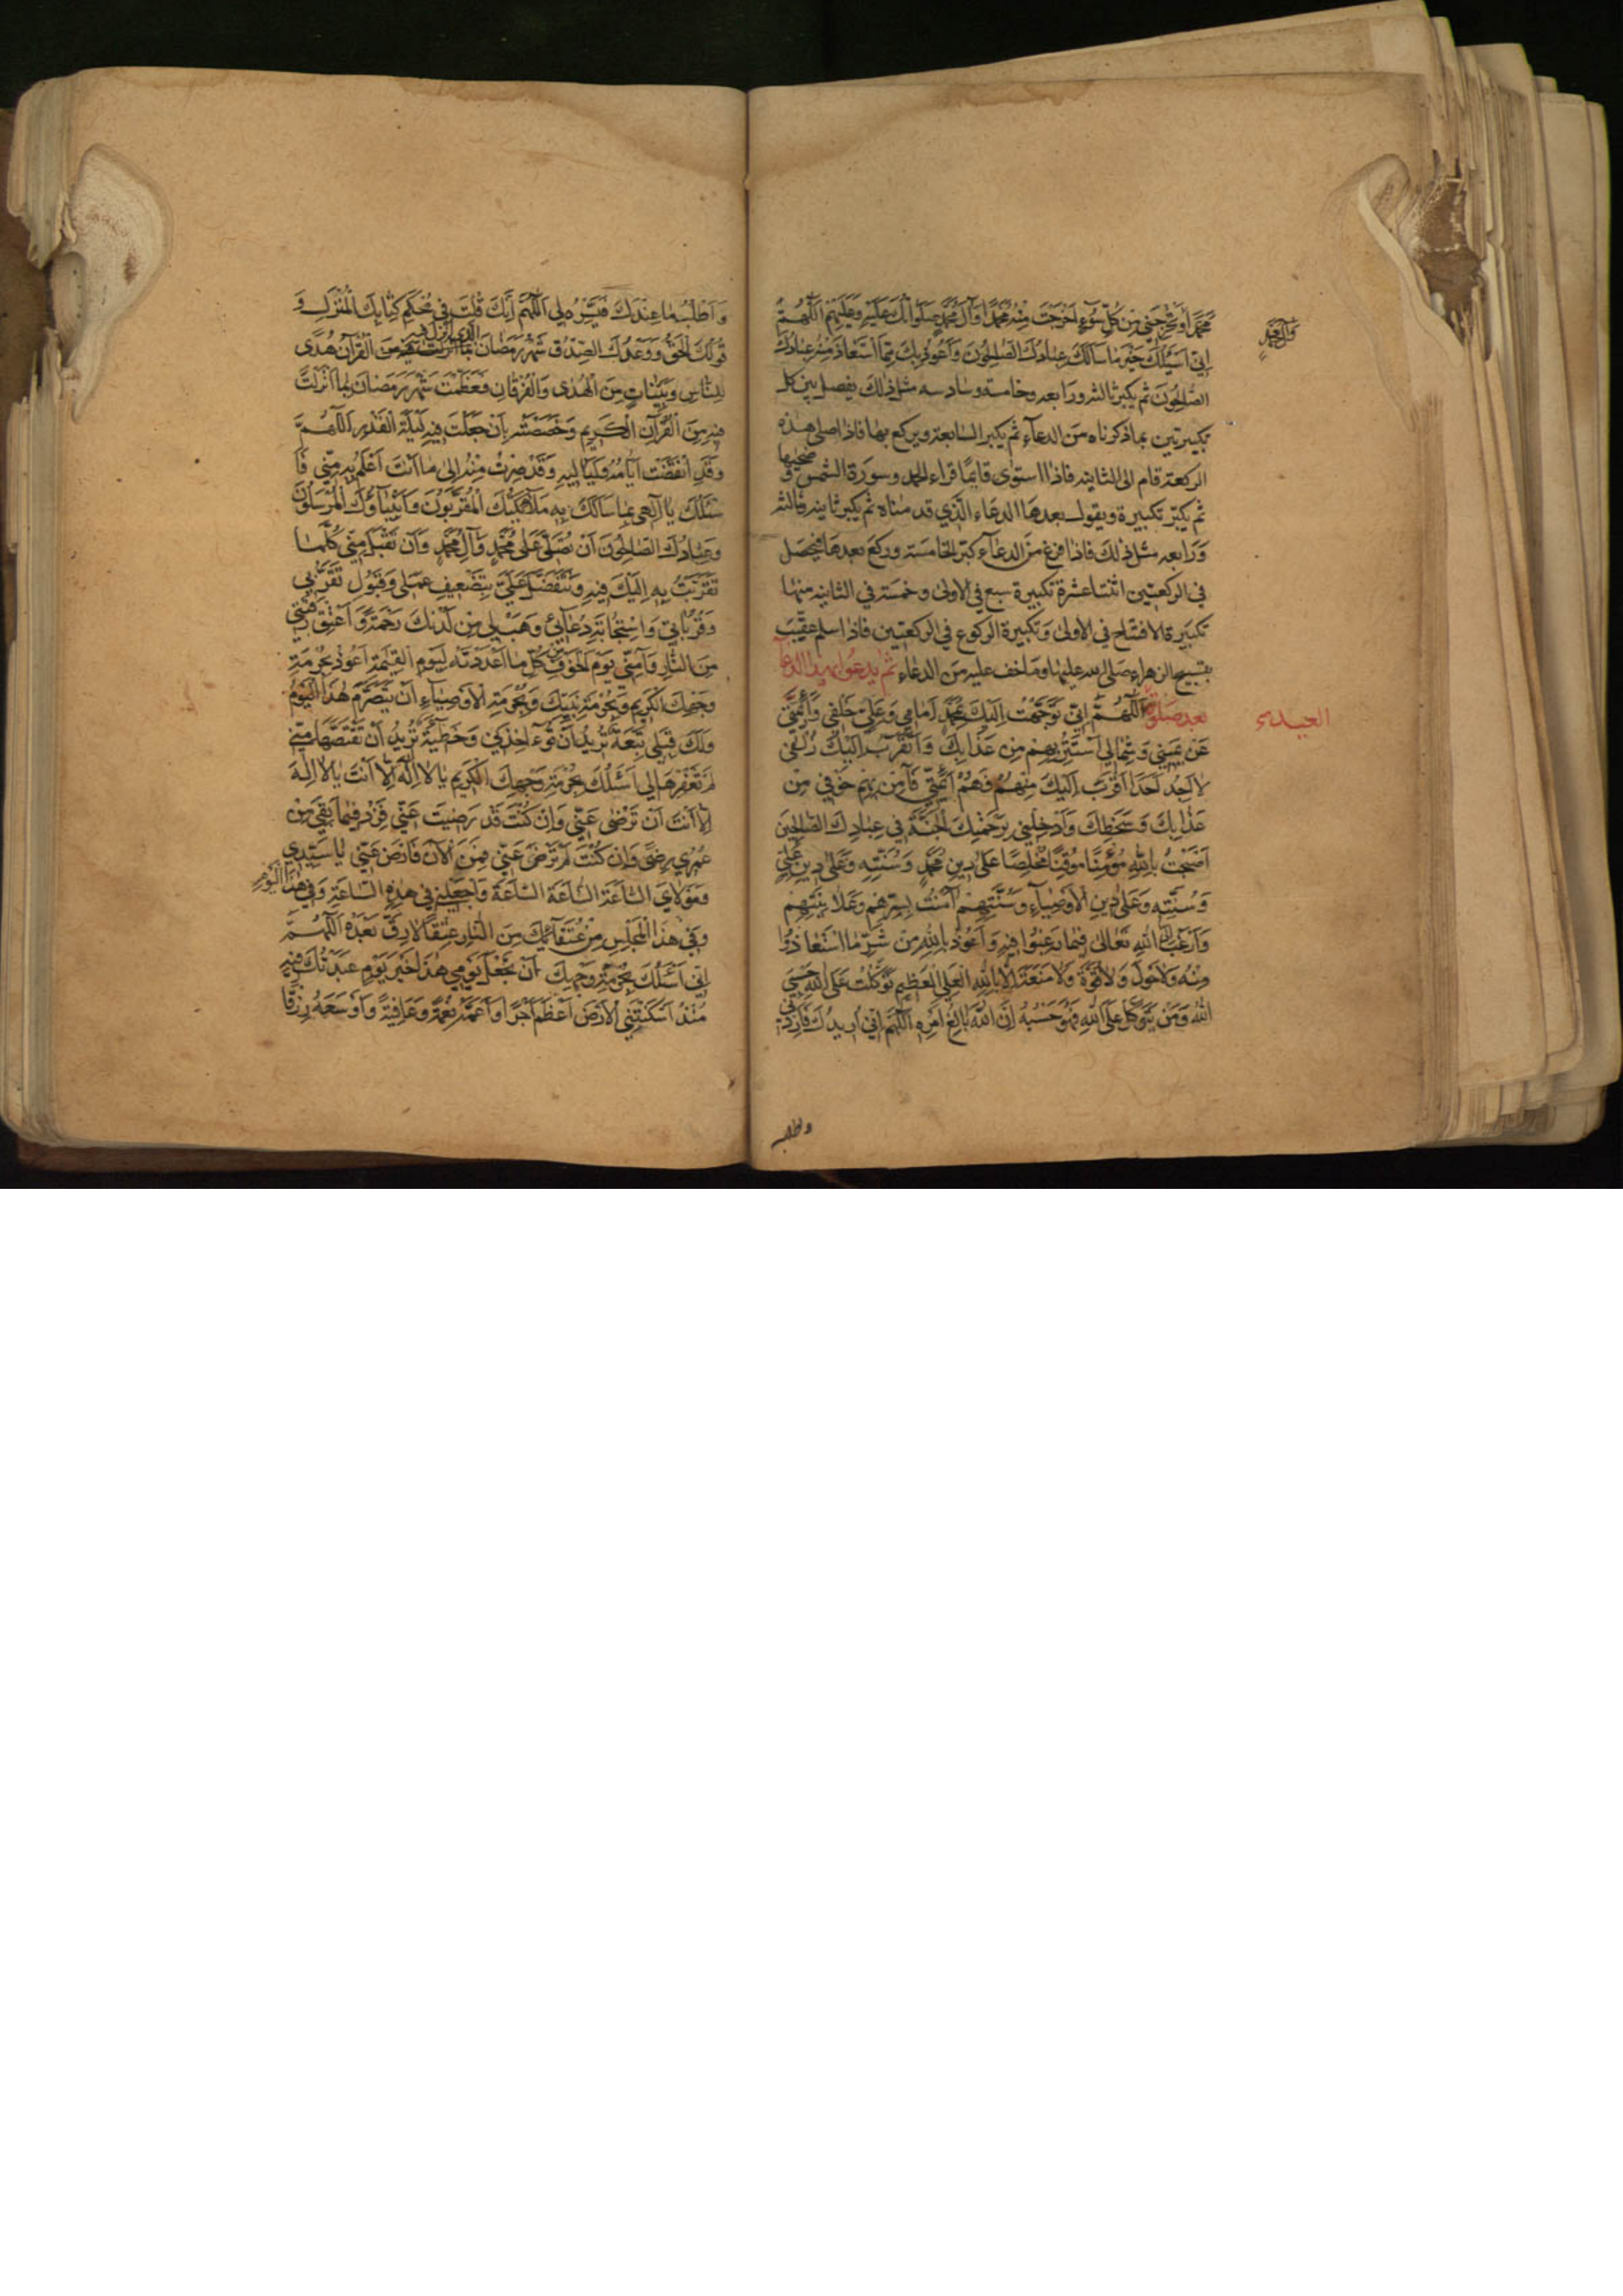 مُحَمَّداً وَتُخْرِجَنِي مِنْ كُلِّ سُوءٍ اَخْرَجْتَ مِنْهُ مُحَمَّداً وَآلَ مُحَمَّدٍ صَلَواتُكَ عَلَيْهِ وَعَلَيْهِمْ اَللّٰهُمَّ
وَآلَ مُحَمَّدٍ
اِنِّي اَسْئَلُكَ خَيْرَ مَا سَأَلَكَ عِبادُكَ الصّٰلِحُونَ وَاَعُوذُ بِكَ مِمَّا اسْتَعَاذَ مِنْهُ عِبَادُكَ
الصّٰلِحُونَ ثم يكبر ثالثه ورابعه وخامسه وسادسه مثل ذلك يفصل بين كل
تكبيرتين بما ذكرناه من الدعاء ثم يكبر السابعة ويركع بها فاذا صلى هذه
الركعة قام الى الثانيه فاذا استوى قايمًا قراء الحمد وسورة الشمس وضحيها
ثم يكبّر تكبيرة ويقول بعدها الدعاء الّذي قدمناه ثم يكبر ثانيه وثالثه
وَرَابعه مثل ذلك فاذا فرغ من الدعاء كبّر الخامسة وركع بعدها فيحصل
في الركعتين اثنتا عشرة تكبيرة سبع في الاولى وخمسة في الثانيه منها
تكبيرة الافتتاح في الاولى وَتكبيرة الركوع في الركعتين فاذا سلم عقّب
بتسبيح الزهراء صلى الله عليها وما خف عليه من الدعاء ثم يدعوا بهذا الدعآ
بعد صلوة اَللّٰهُمَّ اِنِّي تَوَجَّهْتُ اِلَيْكَ بِمُحَمَّدٍ اَمَامِي وَعَلِيٍّ خَلْفِي وَاَئِمَّتِي
العيد
عَنْ يَمِينِي وَشِمَالِي اَسْتَتِرُ بِهِمْ مِنْ عَذَابِكَ وَاَتَقَرَّبُ اِلَيْكَ زُلْفىٰ
لٰا اَجِدُ اَحَداً اَقْرَبَ اِلَيْكَ مِنْهُمْ فَهُمْ اَئِمَّتِي فَآمِنْ بِهِمْ خَوْفِي مِنْ
عَذَابِكَ وَسَخَطِكَ وَاَدْخِلْنِي بِرَحْمَتِكَ الْجَنَّةَ فِي عِبَادِكَ الصّٰلِحِينَ
اَصْبَحْتُ بِاللّٰهِ مُؤْمِنًا مُوقِنًا مُخْلِصًا عَلىٰ دِينِ مُحَمَّدٍ وَسُنَّتِهِ وَعَلىٰ دِينِ عَلِيٍّ
وَسُنَّتِهِ وَعَلىٰ دِينِ الْاَوْصِيَاءِ وَسُنَّتِهِمْ آمَنْتُ بِسِرِّهِمْ وَعَلَانِيَتِهِمْ
وَاَرْغَبُ اِلَى اللّٰهِ تَعَالىٰ فِيمَا رَغِبُوا فِيهِ وَاَعُوذُ بِاللّٰهِ مِنْ شَرِّ مَا اسْتَعَاذُوا
مِنْهُ وَلَا حَوْلَ وَلَا قُوَّةَ وَلَا مَنَعَةَ اِلَّا بِاللّٰهِ الْعَلِيِّ الْعَظِيمِ تَوَكَّلْتُ عَلَى اللّٰهِ حَسْبِيَ
اللّٰهُ وَمَنْ يَتَوَكَّلْ عَلَى اللّٰهِ فَهُوَ حَسْبُهُ اِنَّ اللّٰهَ بَالِغُ اَمْرِهِ اَللّٰهُمَّ اِنِّي اُرِيدُكَ فَاَرِدْنِي
واطلب
وَاَطْلُبُ مَا عِنْدَكَ فَيَسِّرْهُ لِي اَللّٰهُمَّ اِنَّكَ قُلْتَ فِي مُحْكَمِ كِتَابِكَ الْمُنْزَلِ وَ
قَوْلُكَ الْحَقُّ وَوَعْدُكَ الصِّدْقُ شَهْرُ رَمَضَانَ الذي انزل فيه الْقُرْآنُ هُدًى
لِلنَّاسِ وَبَيِّنَاتٍ مِنَ الْهُدىٰ وَالْفُرْقَانِ فَعَظَّمْتَ شَهْرَ رَمَضَانَ بِمَا اَنْزَلْتَ
فِيهِ مِنَ الْقُرْآنِ الْكَرِيمِ وَخَصَصْتَهُ بِاَنْ جَعَلْتَ فِيهِ لَيْلَةَ الْقَدْرِ اَللّٰهُمَّ
وَقَدِ انْقَضَتْ اَيَّامُهُ وَلَيَالِيهِ وَقَدْ صِرْتُ مِنْهُ اِلىٰ مَا اَنْتَ اَعْلَمُ بِهِ مِنِّي فَاَ
سْئَلُكَ يَا اِلٰهِي بِمَا سَاَلَكَ بِهِ مَلَائِكَتُكَ الْمُقَرَّبُونَ وَاَنْبِيَاؤُكَ الْمُرْسَلُونَ
وَعِبَادُكَ الصَّالِحُونَ اَنْ تُصَلِّيَ عَلىٰ مُحَمَّدٍ وَآلِ مُحَمَّدٍ وَاَنْ تَقْبَلَ مِنِّي كُلَّمَا
تَقَرَّبْتُ بِهِ اِلَيْكَ فِيهِ وَتَتَفَضَّلَ عَلَيَّ بِتَضْعِيفِ عَمَلِي وَقَبُولِ تَقَرُّبِي
وَقُرُبَاتِي وَاسْتِجَابَةِ دُعَائِي وَهَبْ لِي مِنْ لَدُنْكَ رَحْمَةً وَاَعْتِقْ رَقَبَتِي
مِنَ النَّارِ وَآمِنِّي يَوْمَ الْخَوْفِ مِنْ كُلِّ مَا اَعْدَدْتَهُ لِيَوْمِ الْقِيٰمَةِ اَعُوذُ بِحُرْمَةِ
وَجْهِكَ الْكَرِيمِ وَبِحُرْمَةِ نَبِيِّكَ وَبِحُرْمَةِ الْاَوْصِيَاءِ اَنْ يَتَصَرَّمَ هٰذَا الْيَوْمُ
وَلَكَ قِبَلِي تَبِعَةٌ تُرِيدُ اَنْ تُؤٰاخِذَنِي وَخَطِيئَةٌ تُرِيدُ اَنْ تَقْتَصَّهَا مِنِّي
لَمْ تَغْفِرْهَا لِي اَسْئَلُكَ بِحُرْمَةِ وَجْهِكَ الْكَرِيمِ يَا لَا اِلٰهَ اِلَّا اَنْتَ يَا لَا اِلٰهَ
اِلَّا اَنْتَ اَنْ تَرْضىٰ عَنِّي وَاِنْ كُنْتَ قَدْ رَضِيتَ عَنِّي فَزِدْ فِيمَا بَقِيَ مِنْ
عُمُرِي رِضًى وَاِنْ كُنْتَ لَمْ تَرْضَ عَنِّي فَمِنَ الْآنَ فَارْضَ عَنِّي يَا سَيِّدِي
وَمَوْلَايَ السَّاعَةَ السَّاعَةَ السَّاعَةَ وَاجْعَلْنِي فِي هٰذِهِ السَّاعَةِ وَفِي هٰذَا الْيَوْمِ
وَفِي هٰذَا الْمَجْلِسِ مِنْ عُتَقَائِكَ مِنَ النَّارِ عِتْقًا لَا رِقَّ بَعْدَهُ اَللّٰهُمَّ
اِنِّي اَسْئَلُكَ بِحُرْمَةِ وَجْهِكَ اَنْ تَجْعَلَ يَوْمِي هٰذَا خَيْرَ يَوْمٍ عَبَدْتُكَ فِيهِ
مُنْذُ اَسْكَنْتَنِي الْاَرْضَ اَعْظَمَهُ اَجْرًا وَاَعَمَّهُ نِعْمَةً وَعَافِيَةً وَاَوْسَعَهُ رِزْقًا